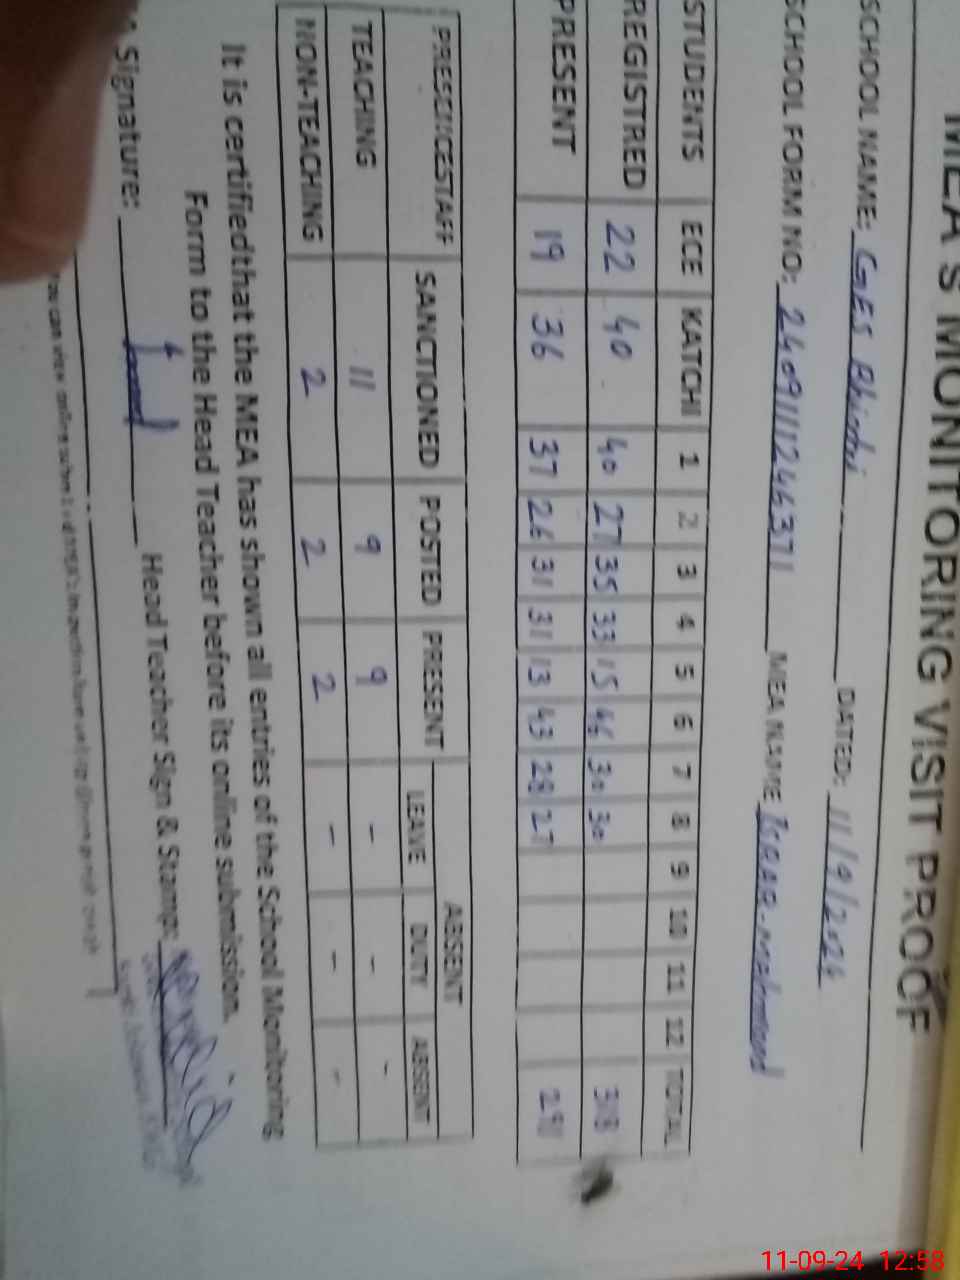 MEA'S MONITORING VISIT PROOF
SCHOOL NAME: GES DATED: 11/9/2024
SCHOOL FORM NO: 24091111246371 MEA NAME ISRAR-mehmood
STUDENTS ECE KATCHI 1 2 3 4 5 6 7 8 9 10 11 12 TOTAL
REGISTRED 22 40 40 27 35 33 15 46 30 30 318
PRESENT 19 36 37 26 31 31 13 43 28 27 291
STAFF SANCTIONED POSTED PRESENT ABSENT
LEAVE DUTY ABSENT
TEACHING 11 9 9 - - -
NON-TEACHING 2 2 2 - - -
It is certifiedthat the MEA has shown all entries of the School Monitoring
Form to the Head Teacher before its online submission.
Signature: Head Teacher Sign & Stamp:
You can view online
11-09-24 12:58